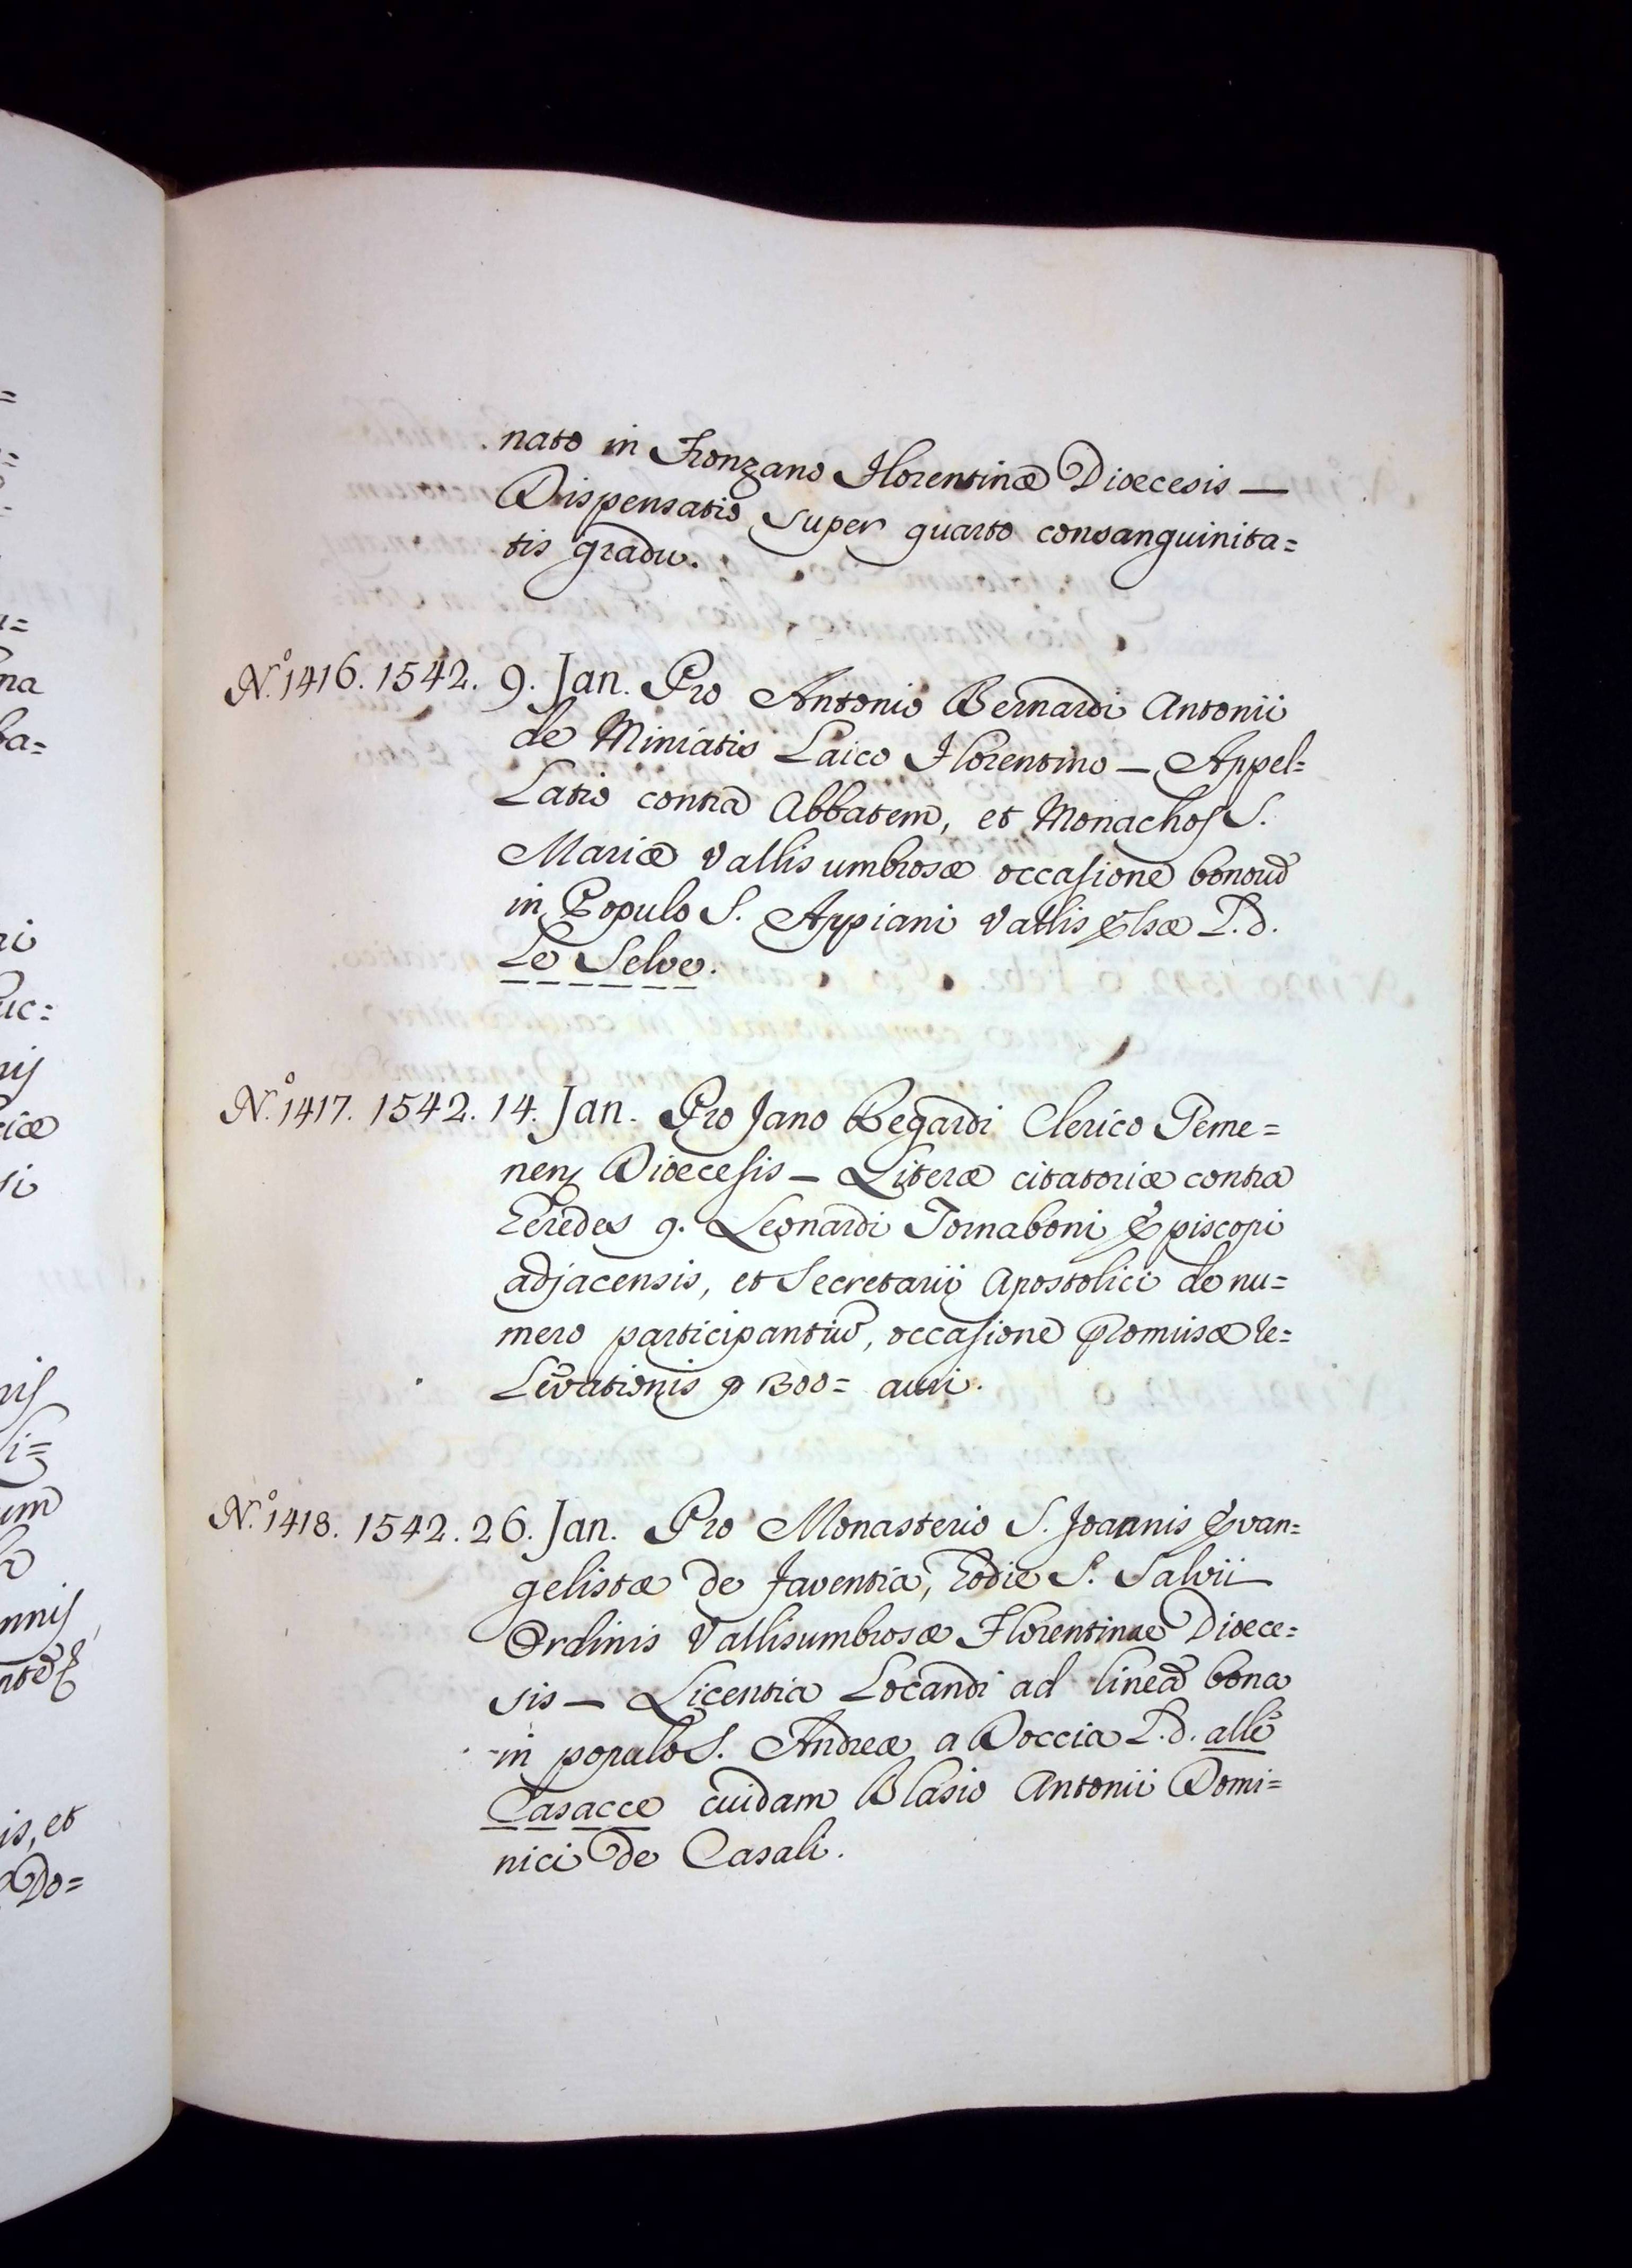 nato in Fronzano Florentinæ Diœcesis —
Dispensatio super quarto consanguinita=
tis gradu.
N.º 1416. 1542. 9. Jan. Pro Antonio Bernardi Antonii
de Miniatis Laico Florentino — Appel=
latio contra Abbatem, et Monachos S.
Mariæ Vallis umbrosæ occasione bonorũ
in Populo S. Appiani Vallis Elsæ L.d.
Le Selve.
N.º 1417. 1542. 14. Jan. Pro Jano Begardi Clerico Teme=
nen Diœcesis — Literæ citatoriæ contra
Heredes q. Leonardi Tornaboni Episcopi
adjacensis, et Secretarii Apostolici de nu=
mero participantiũ, occasione promissæ re=
levationis p 1300= auri.
N.º 1418. 1542. 26. Jan. Pro Monasterio S. Joannis Evan=
gelistæ de Faventia, hodie S. Salvii
Ordinis Vallisumbrosæ Florentinae Diœce=
sis — Licentia Locandi ad lineã bona
in populo S. Andreæ a Doccia L.d. alle
Casacce cuidam Blasio Antonii Domi=
nici de Casali.
na
ba=
ri
uc=
iæ
si
um
is, et
Do=